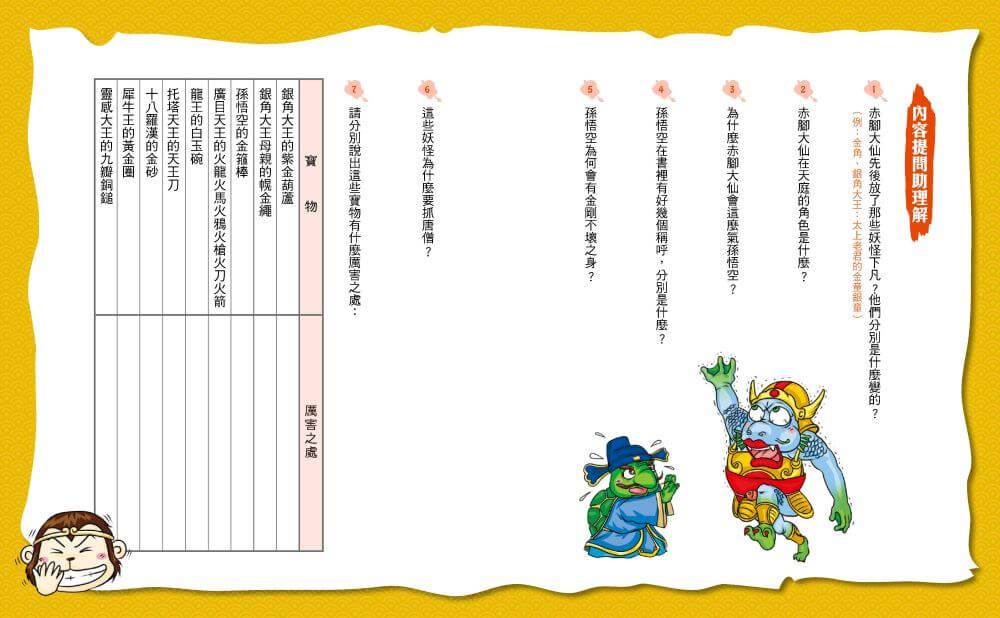 內容提問助理解
1
赤腳大仙先後放了那些妖怪下凡？他們分別是什麼變的？
（例：金角、銀角大王：太上老君的金童銀童）
2
赤腳大仙在天庭的角色是什麼？
3
為什麼赤腳大仙會這麼氣孫悟空？
4
孫悟空在書裡有好幾個稱呼，分別是什麼？
5
孫悟空為何會有金剛不壞之身？
6
這些妖怪為什麼要抓唐僧？
7
請分別說出這些寶物有什麼厲害之處：
寶物
厲害之處
銀角大王的紫金葫蘆
銀角大王母親的幌金繩
孫悟空的金箍棒
廣目天王的火龍火馬火鴉火槍火刀火箭
龍王的白玉碗
托塔天王的天王刀
十八羅漢的金砂
犀牛王的黃金圈
靈感大王的九瓣銅鎚